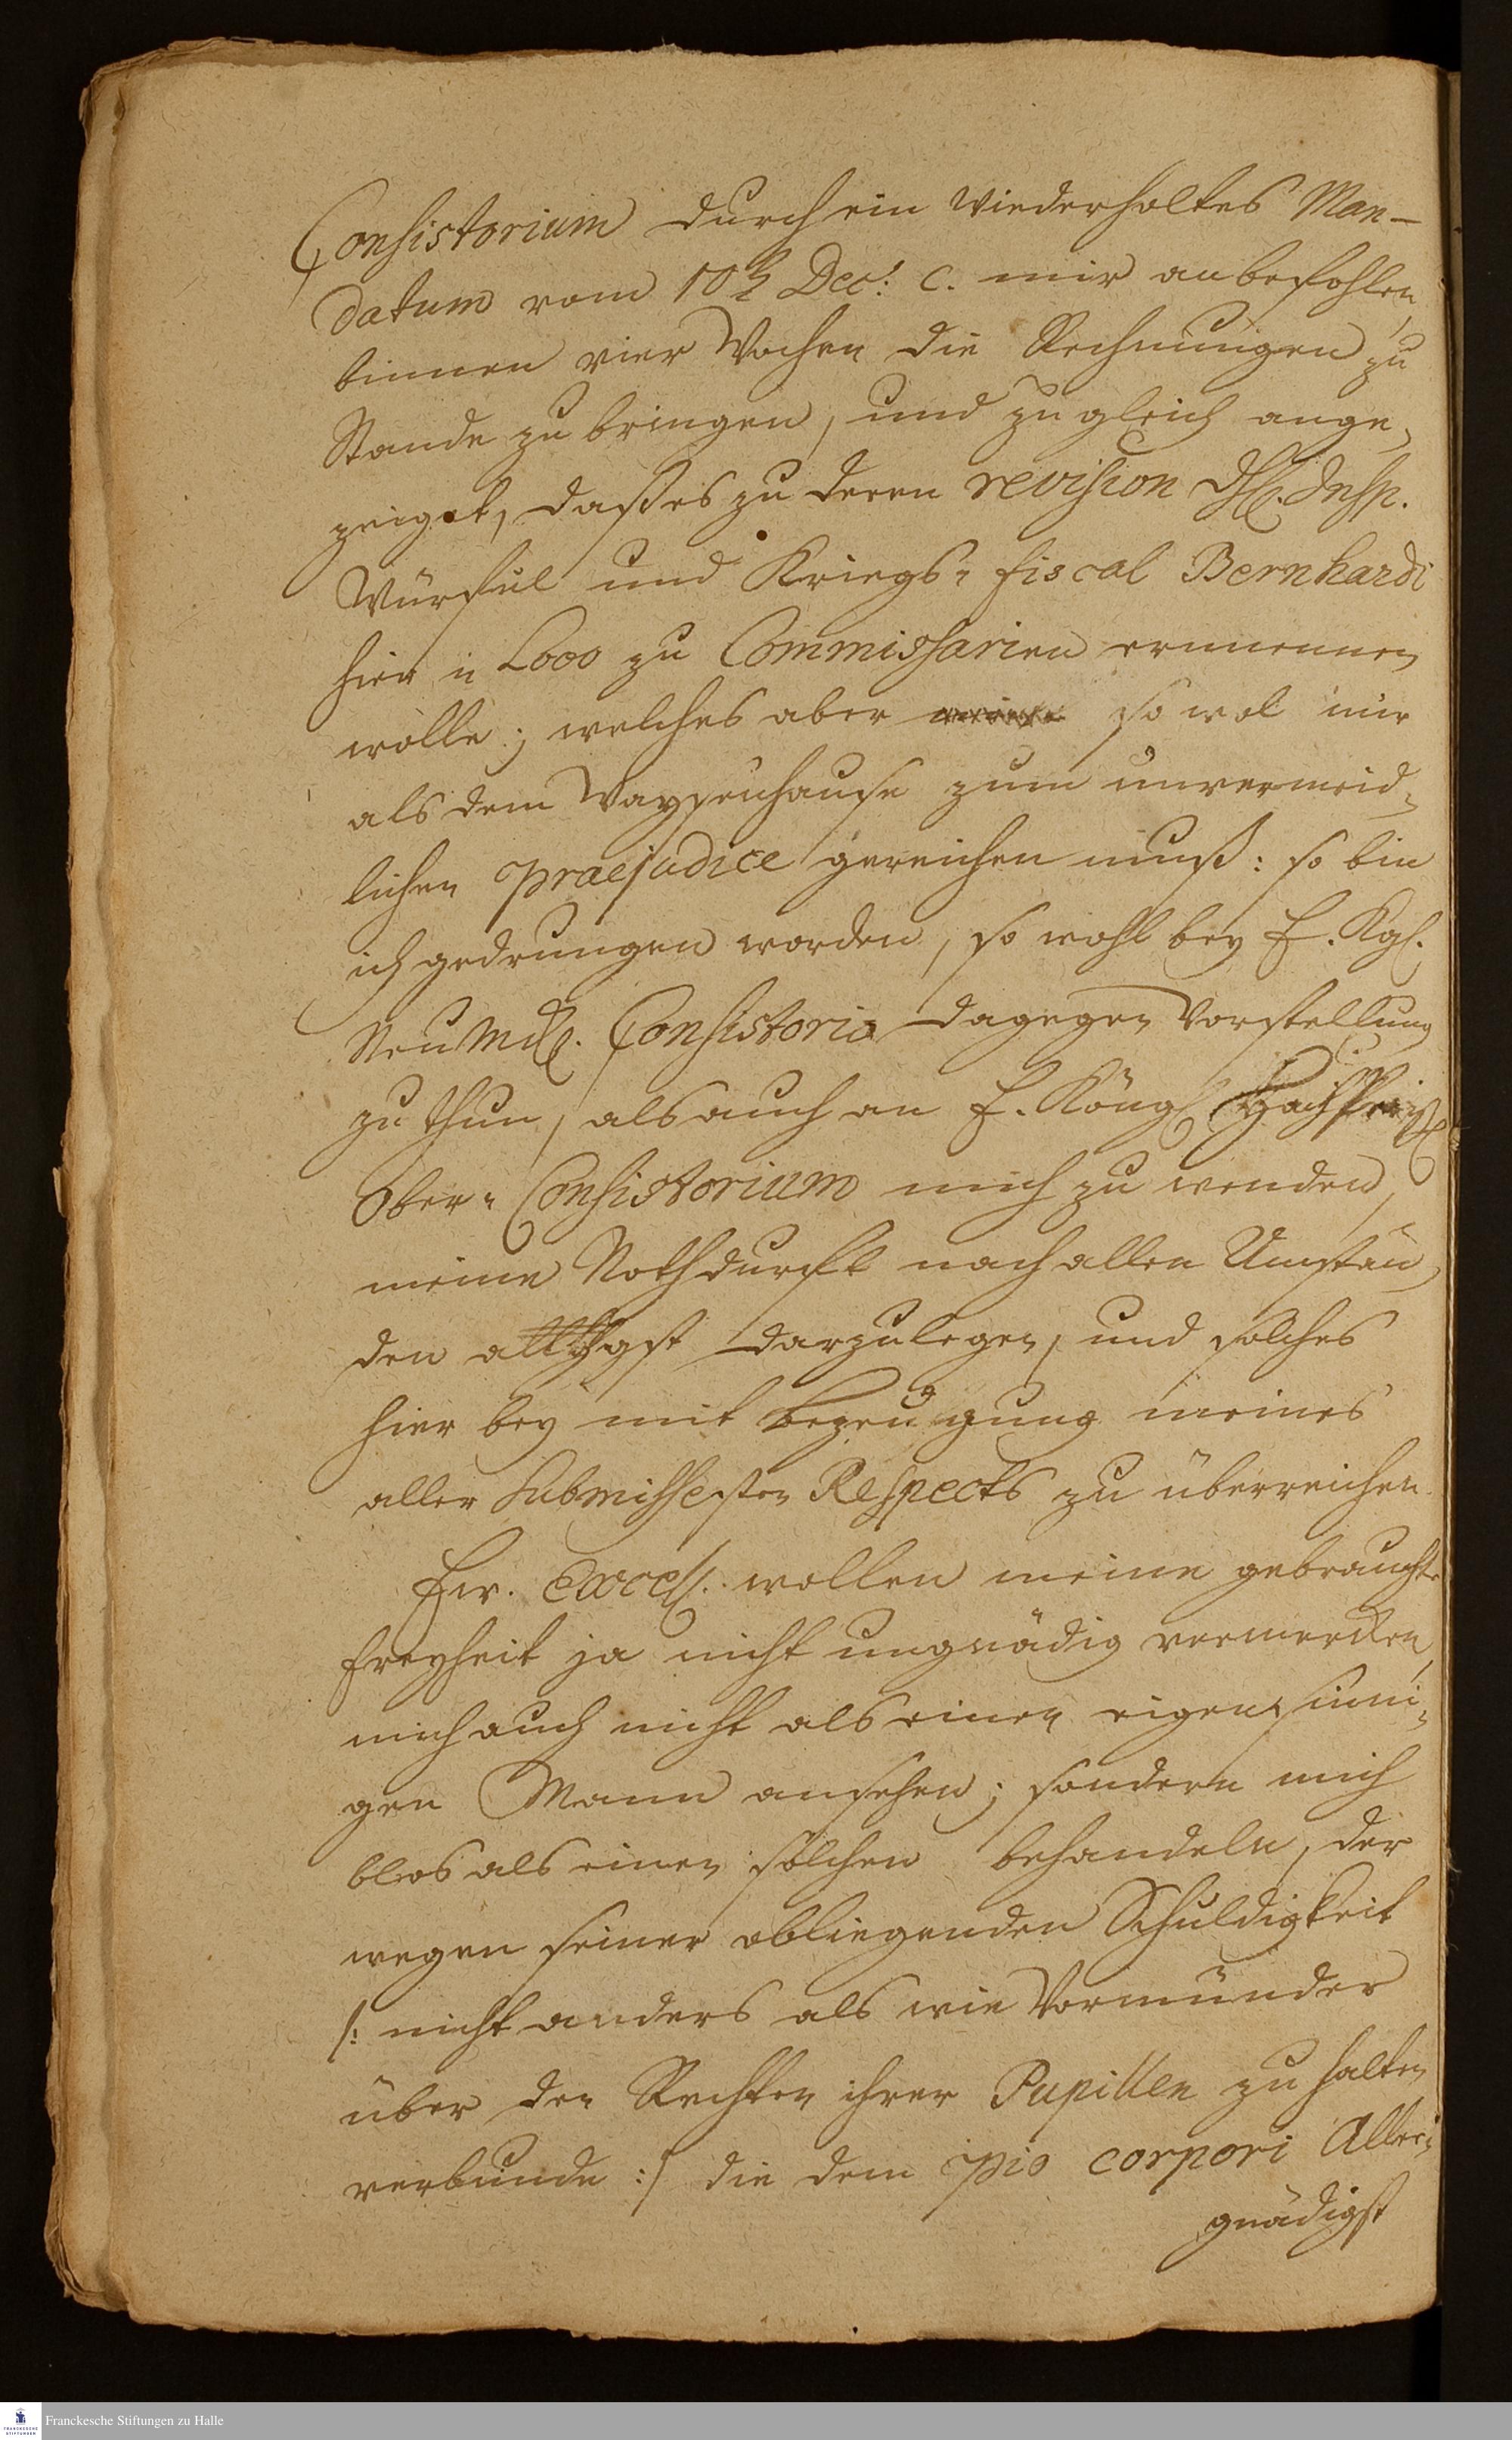 Consistorium durch ein wiederholtes Man-
datum vom 10t Dec: c. mir anbefohlen,
binnen vier Wochen die Rechnungen zu
Stande zu bringen, und zugleich ange,,
zeiget, daß es zu deren revision Insp.
Würful und Kriegs- fiscal Bernhardi
hier in Loco zu Commissarien ernennen
wolle; welches aber so wol mir
als dem Waysenhause zum unvermeid,,
lichen praejudice gereichen muß: so bin
ich gedrungen worden, so wohl bey E. Kgl.
Neumk. Consistorio dagegen Vorstellung
zu thun, als auch an E. Köngl.
Ober- Consistorium mich zu wenden,
meine Nothdurfft nach allen Umstän,,
den darzulegen, und solches
hier bey mit bezeugung meines
aller submissesten Respects zu überreichen.
Ew. Excell. wollen meine gebrauchte
Freyheit ja nicht ungnädig vermercken,
mich auch nicht als einen eigensinni,,
gen Mann ansehen; sondern mich
blos als einen solchen behandeln, der
wegen seiner obliegenden Schuldigkeit
/: nicht anders als wie Vormünder
über den Rechten ihrer Pupillen zu halten
verbunde :/ die dem pio corpori Aller,,
gnädigst
Franckesche Stiftungen zu Halle